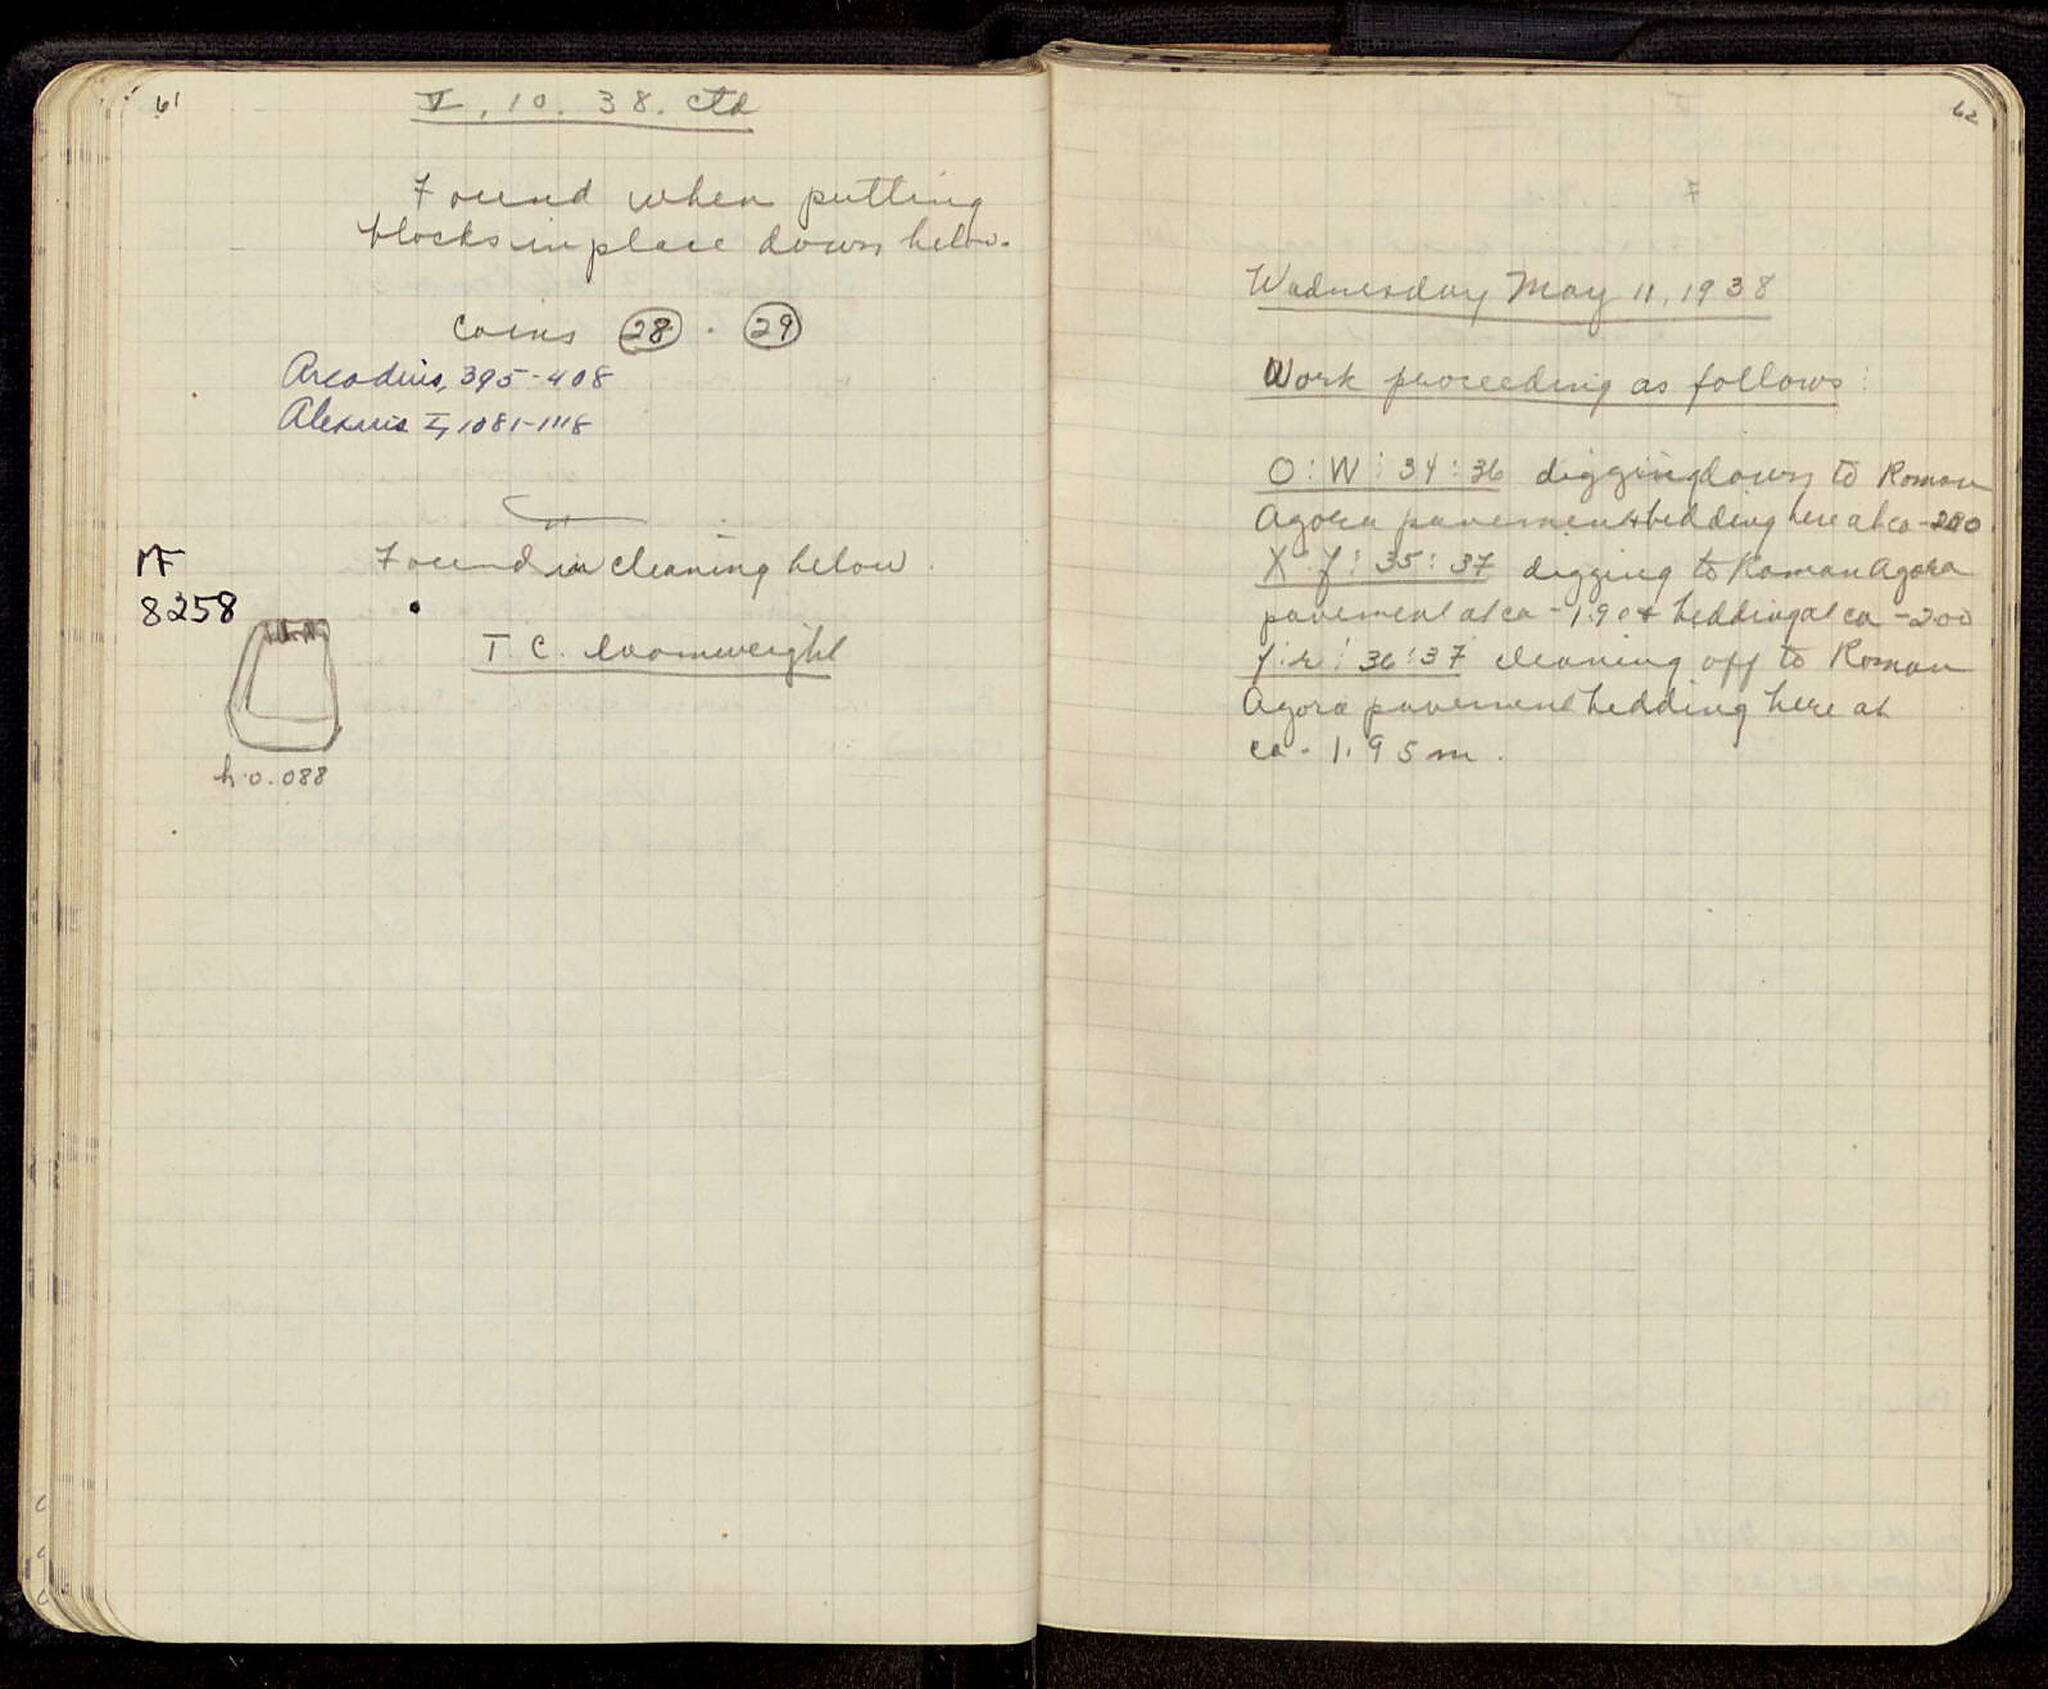 61
V, 10. 38. ctd
Found when putting
blocks in place down below.
coins 28 . 29
Arcadius, 395-408
Alexius I, 1081-1118
MF
8258
Found in cleaning below.
T.C. loomweight
h. 0.088
62
Wednesday May 11, 1938
Work proceeding as follows:
O:W:34:36 digging down to Roman
Agora pavement bedding here at ca -
35:37 digging to Roman Agora
pavement at ca -1.90 + bedding at ca -200
36:37 cleaning off to Roman
Agora pavement bedding here at
ca - 1.95m.